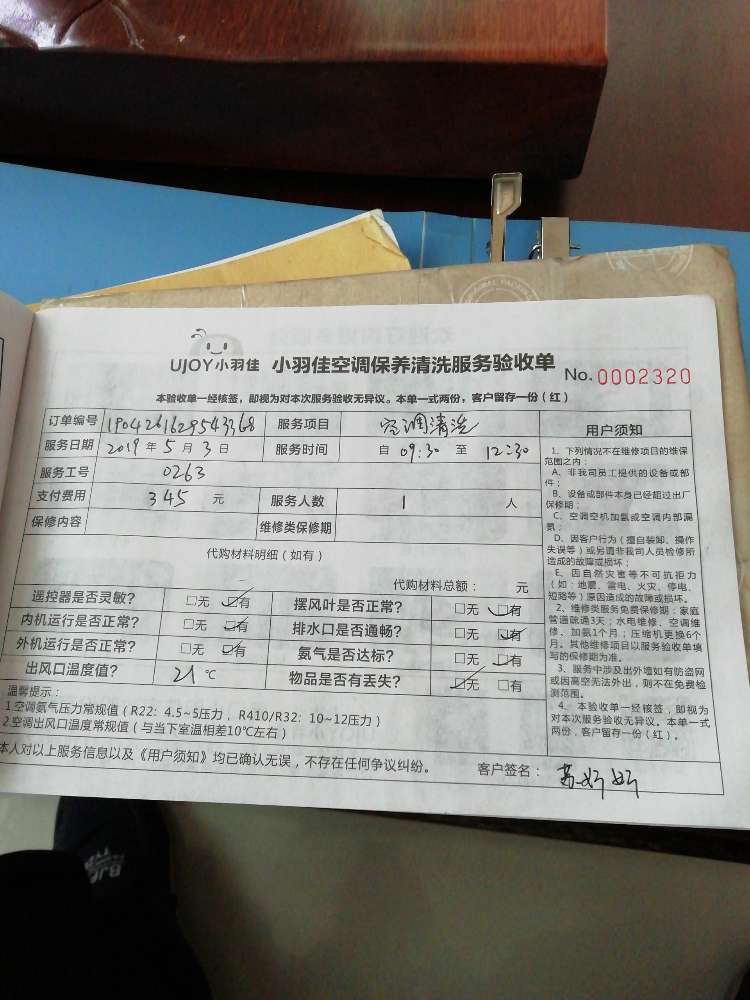 UJOY小羽佳 小羽佳空调保养清洗服务验收单 No.0002320
本验收单一经核签，即视为对本次服务验收无异议。本单一式两份，客户留存一份（红）
订单编号 服务项目 空调清洗
服务日期 2019 年 5 月 3 日 服务时间 自 09:30 至 12:30
服务工号 0263
支付费用 345 元 服务人数 1 人
保修内容 维修类保修期
代购材料明细（如有）
代购材料总额： 元
遥控器是否灵敏？ □无 ☑有 摆风叶是否正常？ □无 ☑有
内机运行是否正常？ □无 ☑有 排水口是否通畅？ □无 ☑有
外机运行是否正常？ □无 ☑有 氨气是否达标？ □无 ☑有
出风口温度值？ 21 ℃ 物品是否有丢失？ ☑无 □有
温馨提示：
1.空调氨气压力常规值（R22: 4.5~5压力， R410/R32: 10~12压力）
2.空调出风口温度常规值（与当下室温相差10℃左右）
本人对以上服务信息以及《用户须知》均已确认无误，不存在任何争议纠纷。 客户签名：
用户须知
1、下列情况不在维修项目的维保
范围之内：
A、非我司员工提供的设备或部
件；
B、设备或部件本身已经超过出厂
保修期；
C、空调空机加氨或空调内部漏
氨；
D、因客户行为（擅自装卸、操作
失误等）或另请非我司人员检修所
造成的故障或损坏；
E、因自然灾害等不可抗拒力
（如：地震、雷电、火灾、停电、
短路等）原因造成的故障或损坏。
2、维修类服务免费保修期：家庭
管道疏通3天；水电维修、空调维
修、加氨1个月；压缩机更换6个
月。其他维修项目以服务验收单填
写的保修期为准。
3、服务中涉及出外墙如有防盗网
或因高空无法外出，则不在免费检
测范围。
4、本验收单一经核签，即视为
对本次服务验收无异议。本单一式
两份，客户留存一份（红）。